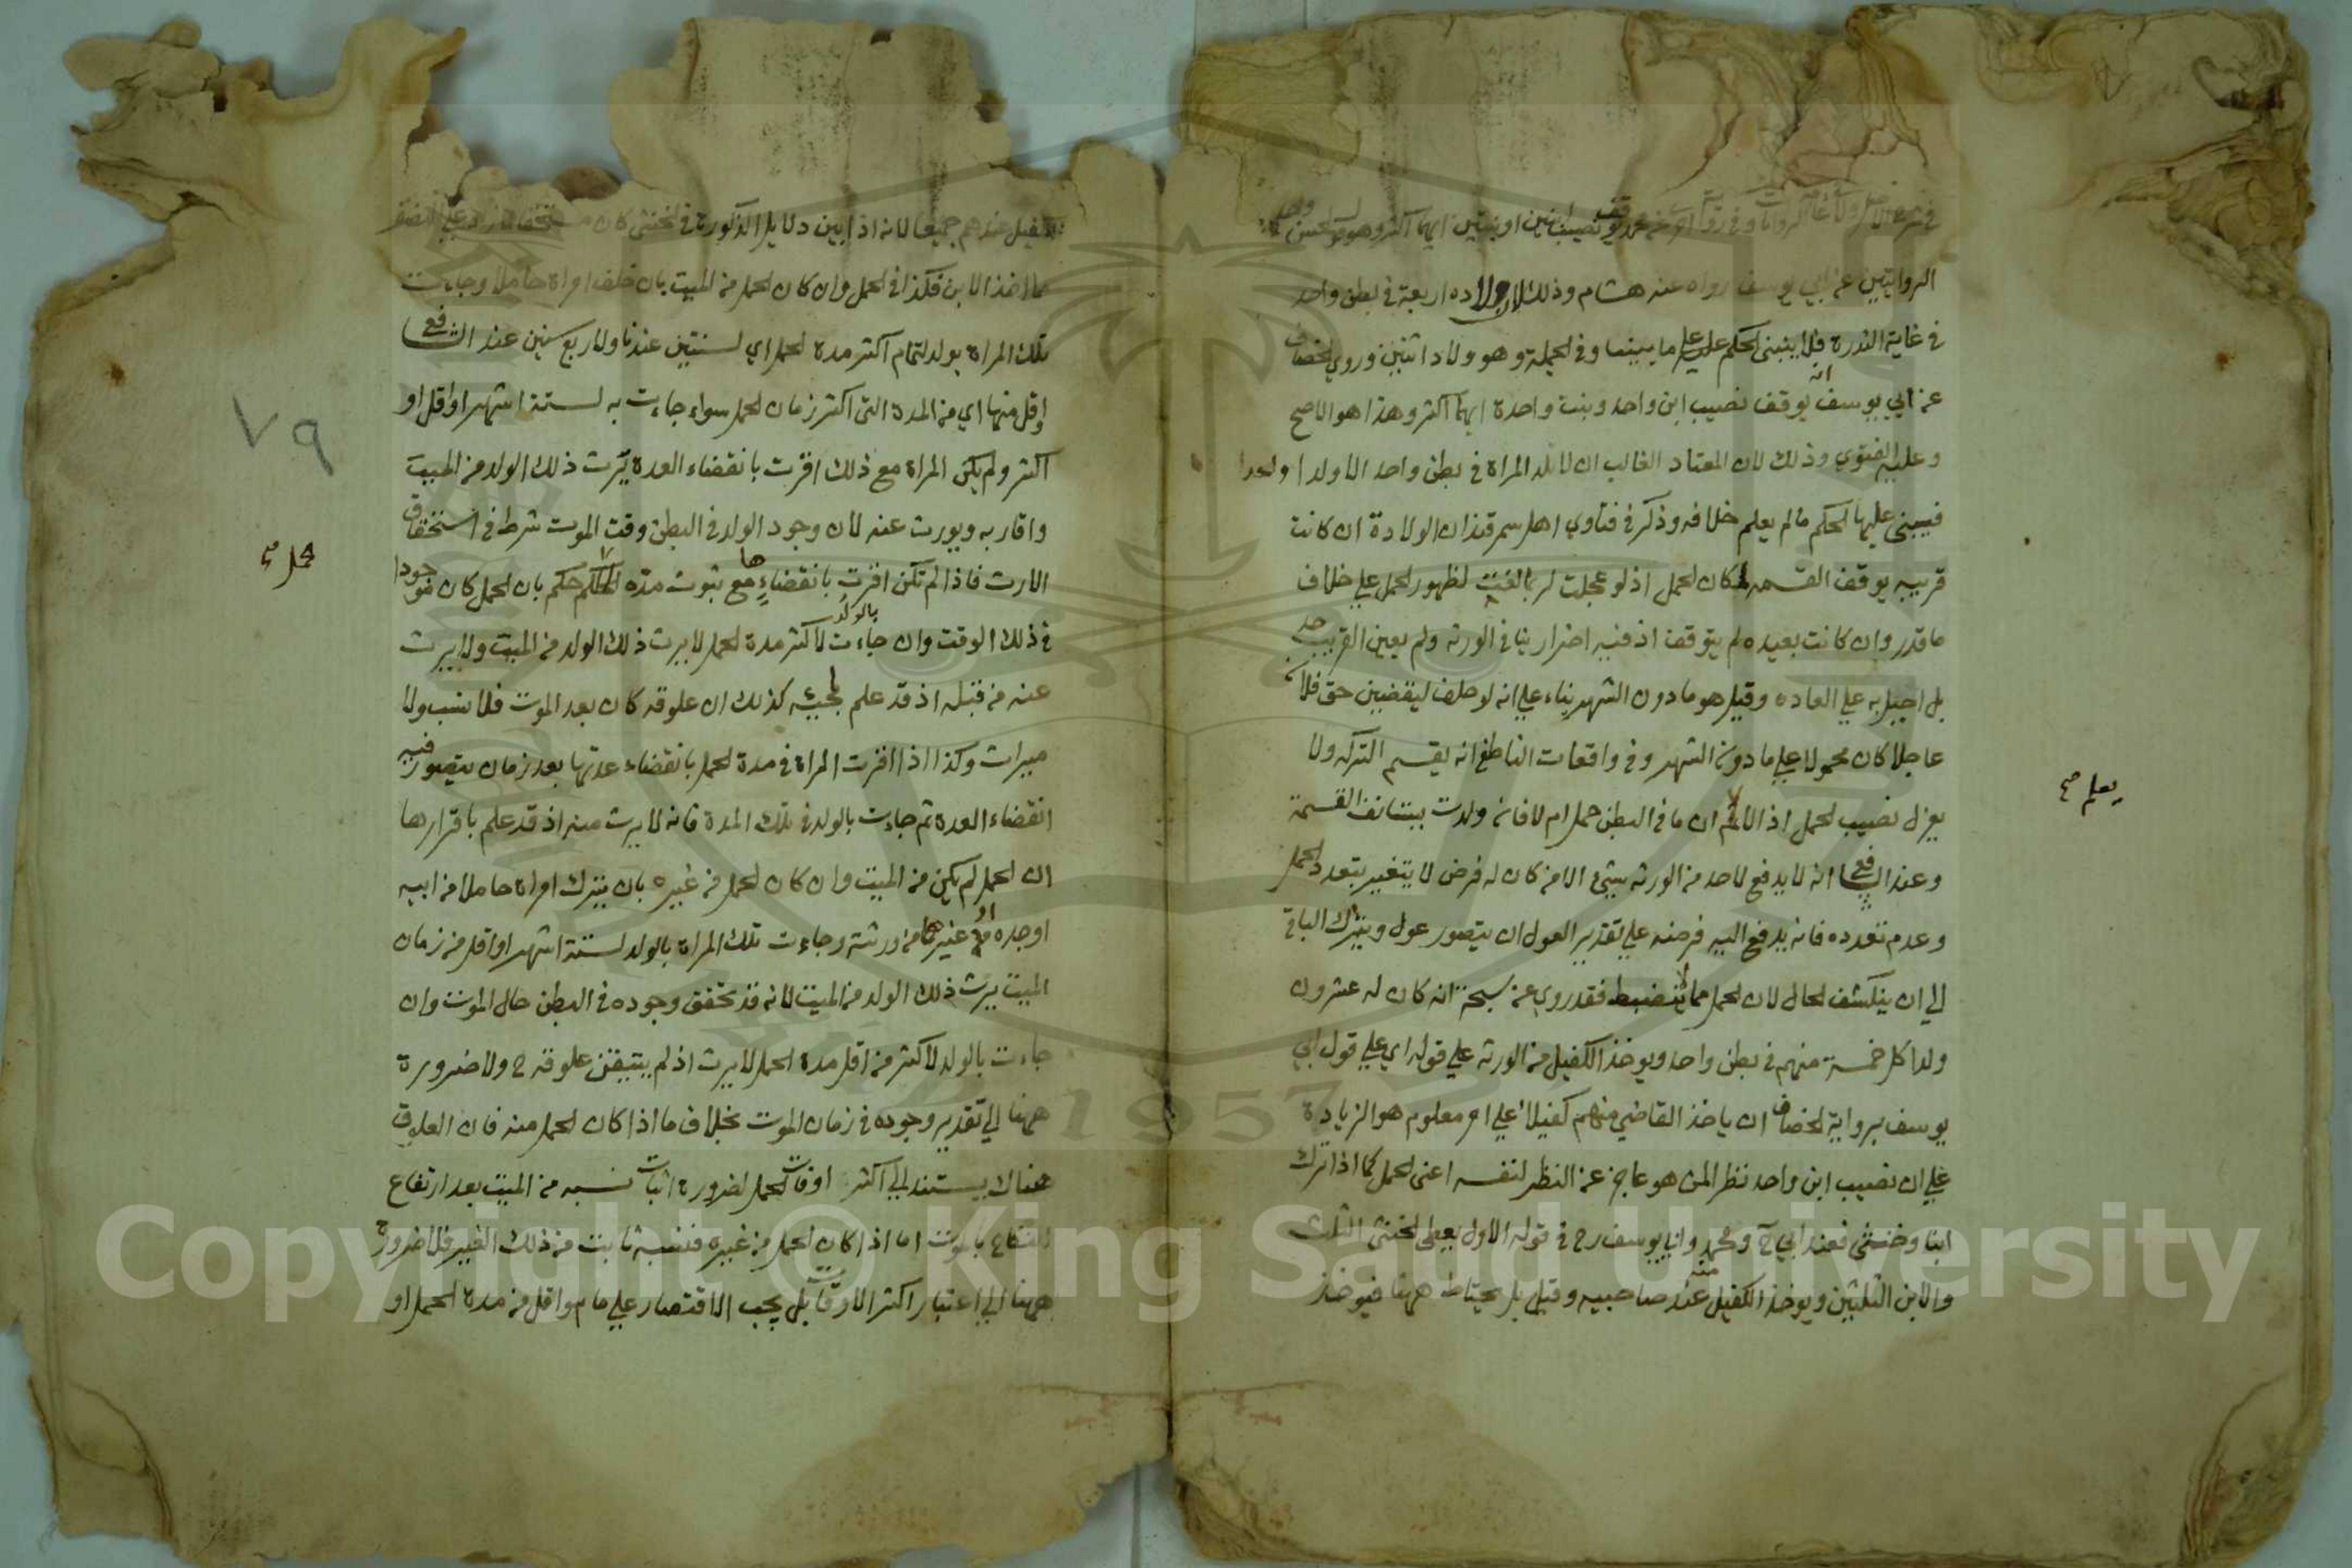 في شرح الاصل ولا غاية الروايات وفي رواية اخرى عن محمد يوقف نصيب ابنين او بنتين ايهما اكثر وهو قول الحسن واحدى
الروايتين عن ابي يوسف رواه عنه هشام وذلك لان ولاده اربعة في بطن واحد
في غاية الندرة فلا ينبنى الحكم عليه على ما بيننا وفي الجملة وهو ولاد اثنين وروي الخصاف
عن ابي يوسف انه يوقف نصيب ابن واحد وبنت واحدة ايهما اكثر وهذا هو الاصح
وعليه الفتوي وذلك لان المعتاد الغالب ان لا تلد المراة في بطن واحد الا ولدا واحدا
فيبنى عليها الحكم ما لم يعلم خلافه وذكر في فتاوي اهل سمرقند ان الولادة ان كانت
قريبه يوقف القسمه لمكان الحمل اذ لو عجلت لربما لغت لظهور الحمل علي خلاف
ما قدر وان كانت بعيده لم يتوقف اذ فيه اضرار بباقي الورثه ولم يعين القريب حد
بل احيل به علي العاده وقيل هو ما دون الشهر بناء علي انه لو حلف ليقضين حق فلان
عاجلا كان محمولا علي ما دون الشهر وفي واقعات الناطفي انه يقسم التركه ولا
يعزل نصيب الحمل اذ لا يعلم ان ما في البطن حمل ام لا فان ولدت يستانف القسمة
وعند الشافعي انه لا يدفع لاحد من الورثه شيئ الا من كان له فرض لا يتغير بتعدد الحمل
وعدم تعدده فانه يدفع اليه فرضه علي تقدير العول ان يتصور عول ويترك الباقي
الي ان ينكشف الحال لان الحمل مما لا ينضبط فقد روي عن شيخ انه كان له عشرون
ولدا كل خمسة منهم في بطن واحد ويوخذ الكفيل من الورثه علي قوله اي علي قول ابي
يوسف برواية الخصاف ان ياخذ القاضي منهم كفيلا علي امر معلوم هو الزيادة
علي ان نصيب ابن واحد نظرا لمن هو عاجز عن النظر لنفسه اعنى الحمل كما اذا ترك
ابنا وخنثى فعند ابي ح ومحمد وابي يوسف رح في قوله الاول يعطى الخنثى الثلث
والابن الثلثين ويوخذ الكفيل منه عند صاحبيه وقيل بل يحتاط ههنا فيوخذ
يعلم صح
الكفيل عندهم جميعا لانه اذا بين دلايل الذكورة في الخنثى كان مستحقا لما زاد علي النصف
مما اخذ الابن فكذا في الحمل وان كان الحمل من الميت بان خلف امراة حاملا وجاءت
تلك المراة بولد لتمام اكثر مدة الحمل اي لسنتين عندنا ولاربع سنين عند الشافعي
او اقل منها اي من المدة التى اكثر زمان الحمل سواء جاءت به لستة اشهر او اقل او
اكثر ولم يكن المراة مع ذلك اقرت بانقضاء العدة يرث ذلك الولد من الميت
واقاربه ويورث عنه لان وجود الولد في البطن وقت الموت شرط في استحقاق
الارث فاذا لم تكن اقرت بانقضاءها مع ثبوت مدة الحمل حكم بان الحمل كان موجودا
في ذلك الوقت وان جاءت بالولد لاكثر مدة الحمل لا يرث ذلك الولد من الميت ولا يرث
عنه من قبله اذ قد علم بمجيئه كذلك ان علوقه كان بعد الموت فلا نسب ولا
ميراث وكذا اذا اقرت المراة في مدة الحمل بانقضاء عدتها بعد زمان يتصور فيه
انقضاء العدة ثم جاءت بالولد في تلك المدة فانه لا يرث منه اذ قد علم باقرارها
ان الحمل لم يكن من الميت وان كان الحمل من غيره بان يترك امراة حاملا من ابيه
او جده او غيرهما من ورثته وجاءت تلك المراة بالولد لستة اشهر او اقل من زمان
الميت يرث ذلك الولد من الميت لانه قد تحقق وجوده في البطن حال الموت وان
جاءت بالولد لاكثر من اقل مدة الحمل لا يرث اذ لم يتيقن علوقه ح ولا ضرورة
ههنا الي تقدير وجوده في زمان الموت بخلاف ما اذا كان الحمل منه فان العلوق
هناك يستند الي اكثر اوقات الحمل لضرورة اثبات نسبه من الميت بعد ارتفاع
النكاح بالموت اما اذا كان الحمل من غيره فنسبه ثابت من ذلك الغير فلا ضرورة
ههنا الي اعتبار اكثر الاوقات بل يجب الاقتصار علي ما هو اقل من مدة الحمل او
٧٩
الحمل صح
1957
Copyright © King Saud University